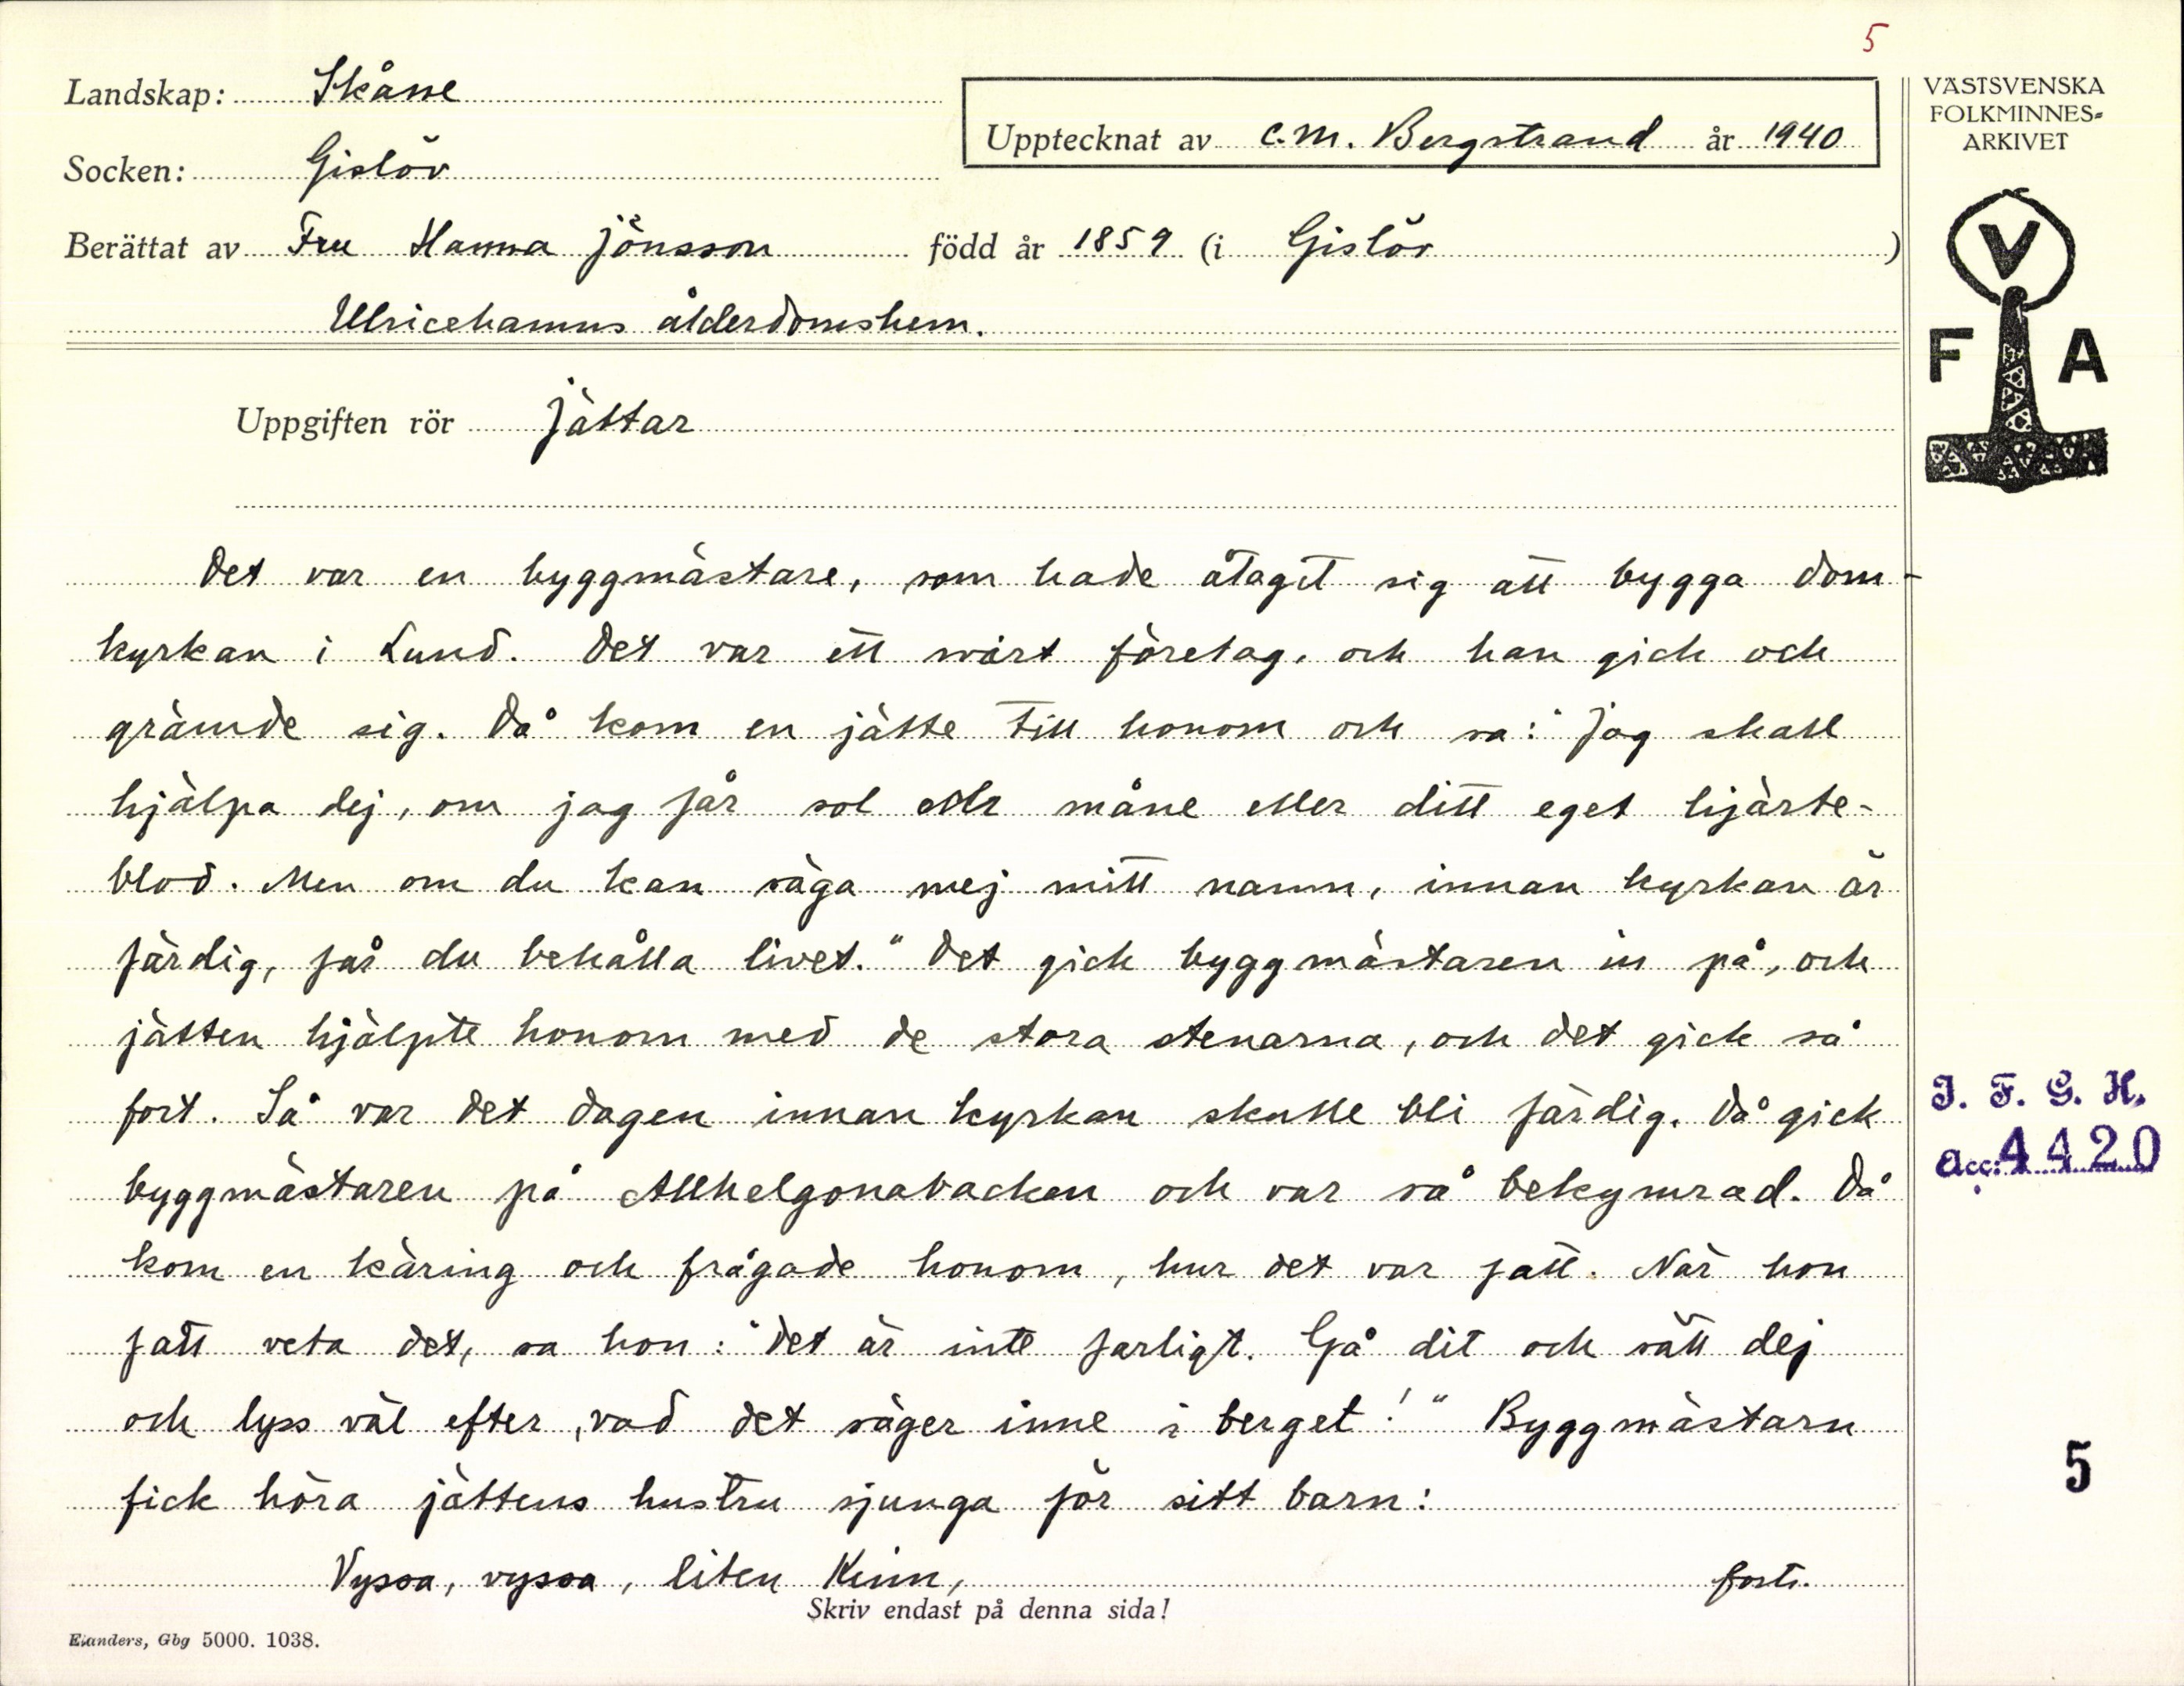 5
Landskap: Skåne
Upptecknat av C.M. Bergstrand år 1940
Socken: Gislöv
Berättat av Fru Hanna Jönsson född år 1859 (i Gislöv)
Ulricehamns ålderdomshem.
Uppgiften rör Jättar
VÄSTSVENSKA
FOLKMINNES-
ARKIVET
V
F A
Det var en byggmästare, som hade åtagit sig att bygga dom-
kyrkan i Lund. Det var ett svårt företag, och han gick och
grämde sig. Då kom en jätte till honom och sa: "Jag skall
hjälpa dej, om jag får sol och måne eller ditt eget hjärte-
blod. Men om du kan säga mej mitt namn, innan kyrkan är
färdig, får du behålla livet." Det gick byggmästaren in på, och
jätten hjälpte honom med de stora stenarna, och det gick så
fort. Så var det dagen innan kyrkan skulle bli färdig. Då gick
byggmästaren på Allhelgonabacken och var så bekymrad. Då
kom en käring och frågade honom, hur det var fatt. När hon
fått veta det, sa hon: "Det är inte farligt. Gå dit och sätt dej
och lyss väl efter, vad det säger inne i berget!" Byggmästarn
fick höra jättens hustru sjunga för sitt barn:
Vyssa, vyssa, liten Kinn,
forts.
Skriv endast på denna sida!
Elanders, Gbg 5000. 1038.
I. F. G. H.
acc: 4420
5